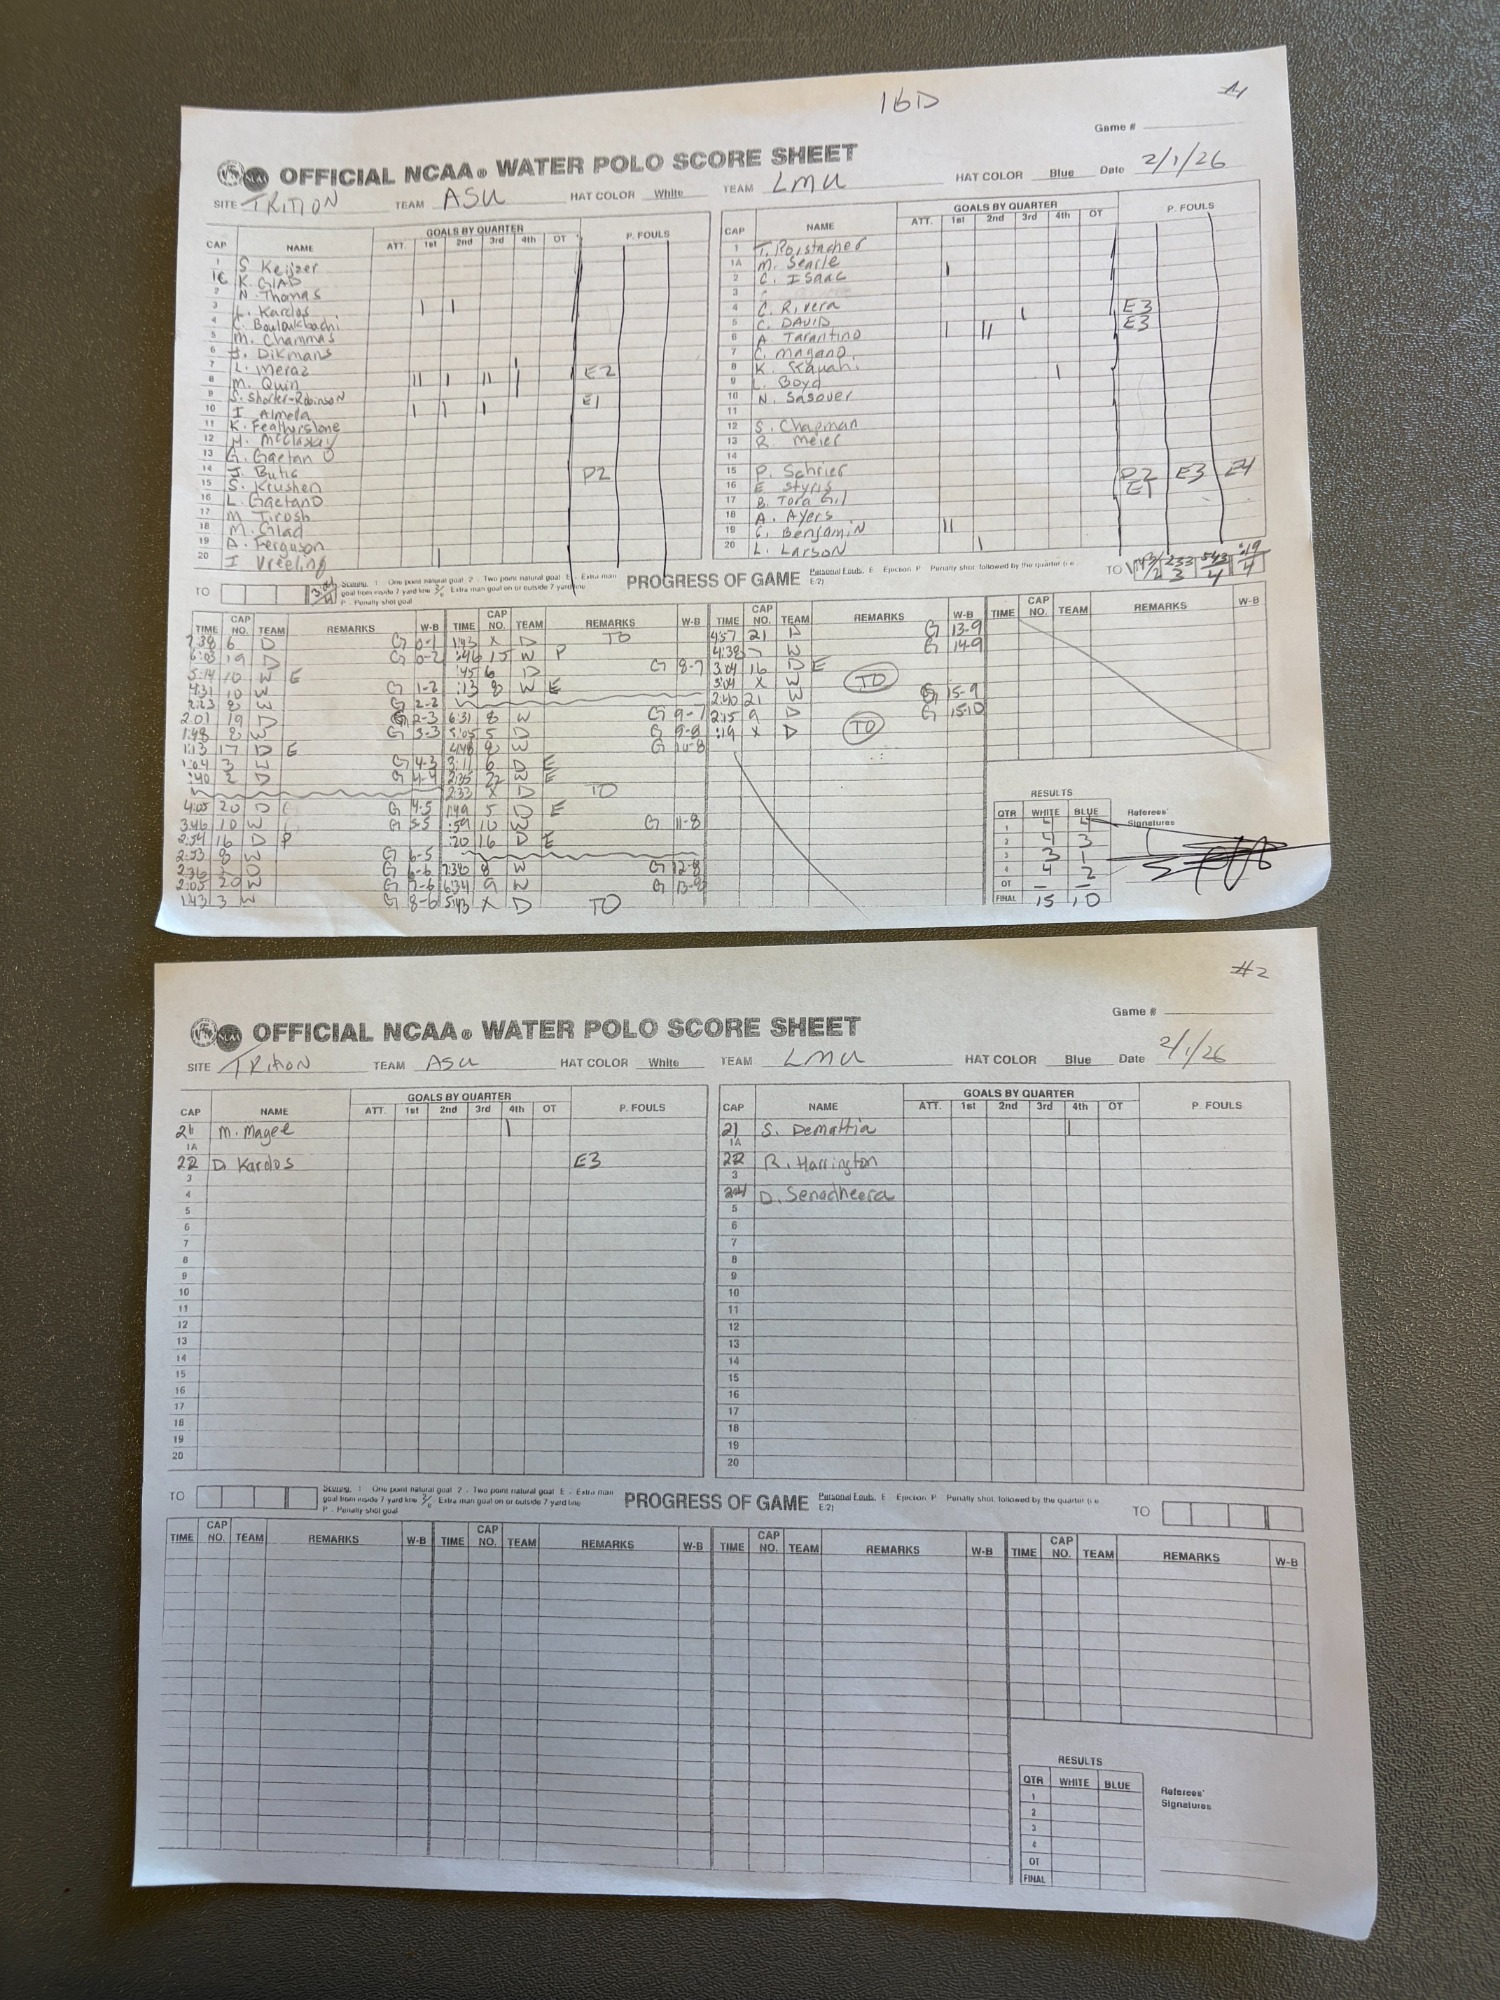 16D
#1
Game #
OFFICIAL NCAA® WATER POLO SCORE SHEET
SITE TRITION TEAM ASU HAT COLOR White TEAM LMU HAT COLOR Blue Date 2/1/26
CAP NAME ATT. GOALS BY QUARTER 1st 2nd 3rd 4th OT P. FOULS
1 S Keijzer
1C K. GIAD
2 N. Thomas
3 L. Kardos | |
4 C. Bouloukbachi
5 M. Chammas
6 J. Dikmans
7 L. Meraz |
8 M. Quin || | || | E2
9 S. Shorter-Robinson
10 I Almela | | | E1
11 K. Featherstone
12 H. McClaskey
13 G. Gaetano
14 J. Butic
15 S. Krushen P2
16 L. Gaetano
17 M. Tirosh
18 M. Glad
19 A. Ferguson
20 I Vreeling |
CAP NAME ATT. GOALS BY QUARTER 1st 2nd 3rd 4th OT P. FOULS
1 T. Roistacher
1A M. Searle
2 C. Isaac |
3
4 C. Rivera
5 C. DAVID | E3
6 A. Tarantino | || E3
7 C. Magano
8 K.
9 L. Boyd |
10 N. Sasover
11
12 S. Chapman
13 R. Meier
14
15 P. Schrier
16 E Styris P2 E3 E4
17 B. Tora Gil E1
18 A. Ayers
19 C. Benjamin ||
20 L. Larson |
TO 3:04/4
Scoring. 1 One point natural goal 2 - Two point natural goal E - Extra man
goal from inside 7 yard line 2/E Extra man goal on or outside 7 yard line
P - Penalty shot goal
PROGRESS OF GAME
Personal Fouls. E Ejection P Penalty shot followed by the quarter (i.e.
E.2)
TO 1:43/2 2:33/3 5:43/4 :19/4
TIME CAP NO. TEAM REMARKS W-B
7:38 6 D G 0-1
6:03 19 D G 0-2
5:14 10 W E
4:31 10 W G 1-2
2:23 8 W G 2-2
2:01 19 D G 2-3
1:48 8 W G 3-3
1:13 17 D E
1:04 3 W G 4-3
:40 2 D G 4-4
4:05 20 D G 4-5
3:46 10 W G 5-5
2:54 16 D P
2:53 8 W G 6-5
2:36 D G 6-6
2:05 20 W G 7-6
1:43 3 W G 8-6
TIME CAP NO. TEAM REMARKS W-B
1:43 X D TO
:46 15 W P
:45 6 D G 8-7
:13 8 W E
6:31 8 W G 9-7
5:05 5 D G 9-8
4:48 8 W G 10-8
3:11 6 D E
2:35 22 W E
2:33 X D TO
1:49 5 D E
:59 10 W G 11-8
:20 16 D E
7:30 8 W G 12-8
6:34 9 W G 13-8
5:43 X D TO
TIME CAP NO. TEAM REMARKS W-B
4:57 21 D G 13-9
4:38 7 W G 14-9
3:04 16 D E
3:04 X W TO
2:40 21 W G 15-9
2:15 9 D G 15-10
:19 X D TO
TIME CAP NO. TEAM REMARKS W-B
RESULTS
QTR WHITE BLUE
1 4 4
2 4 3
3 3 1
4 4 2
OT — —
FINAL 15 10
Referees'
Signatures
#2
Game #
OFFICIAL NCAA® WATER POLO SCORE SHEET
SITE TRITION TEAM ASU HAT COLOR White TEAM LMU HAT COLOR Blue Date 2/1/26
CAP NAME ATT. GOALS BY QUARTER 1st 2nd 3rd 4th OT P. FOULS
21 M. Magee |
1A
22 D. Kardos E3
3
4
5
6
7
8
9
10
11
12
13
14
15
16
17
18
19
20
CAP NAME ATT. GOALS BY QUARTER 1st 2nd 3rd 4th OT P. FOULS
21 S. Demattia |
1A
22 R. Harrington
3
24 D. Senadheera
5
6
7
8
9
10
11
12
13
14
15
16
17
18
19
20
TO
Scoring. 1 One point natural goal 2 - Two point natural goal E - Extra man
goal from inside 7 yard line 2/E Extra man goal on or outside 7 yard line
P - Penalty shot goal
PROGRESS OF GAME
Personal Fouls. E Ejection P Penalty shot followed by the quarter (i.e.
E.2)
TO
TIME CAP NO. TEAM REMARKS W-B TIME CAP NO. TEAM REMARKS W-B TIME CAP NO. TEAM REMARKS W-B TIME CAP NO. TEAM REMARKS W-B
RESULTS
QTR WHITE BLUE
1
2
3
4
OT
FINAL
Referees'
Signatures